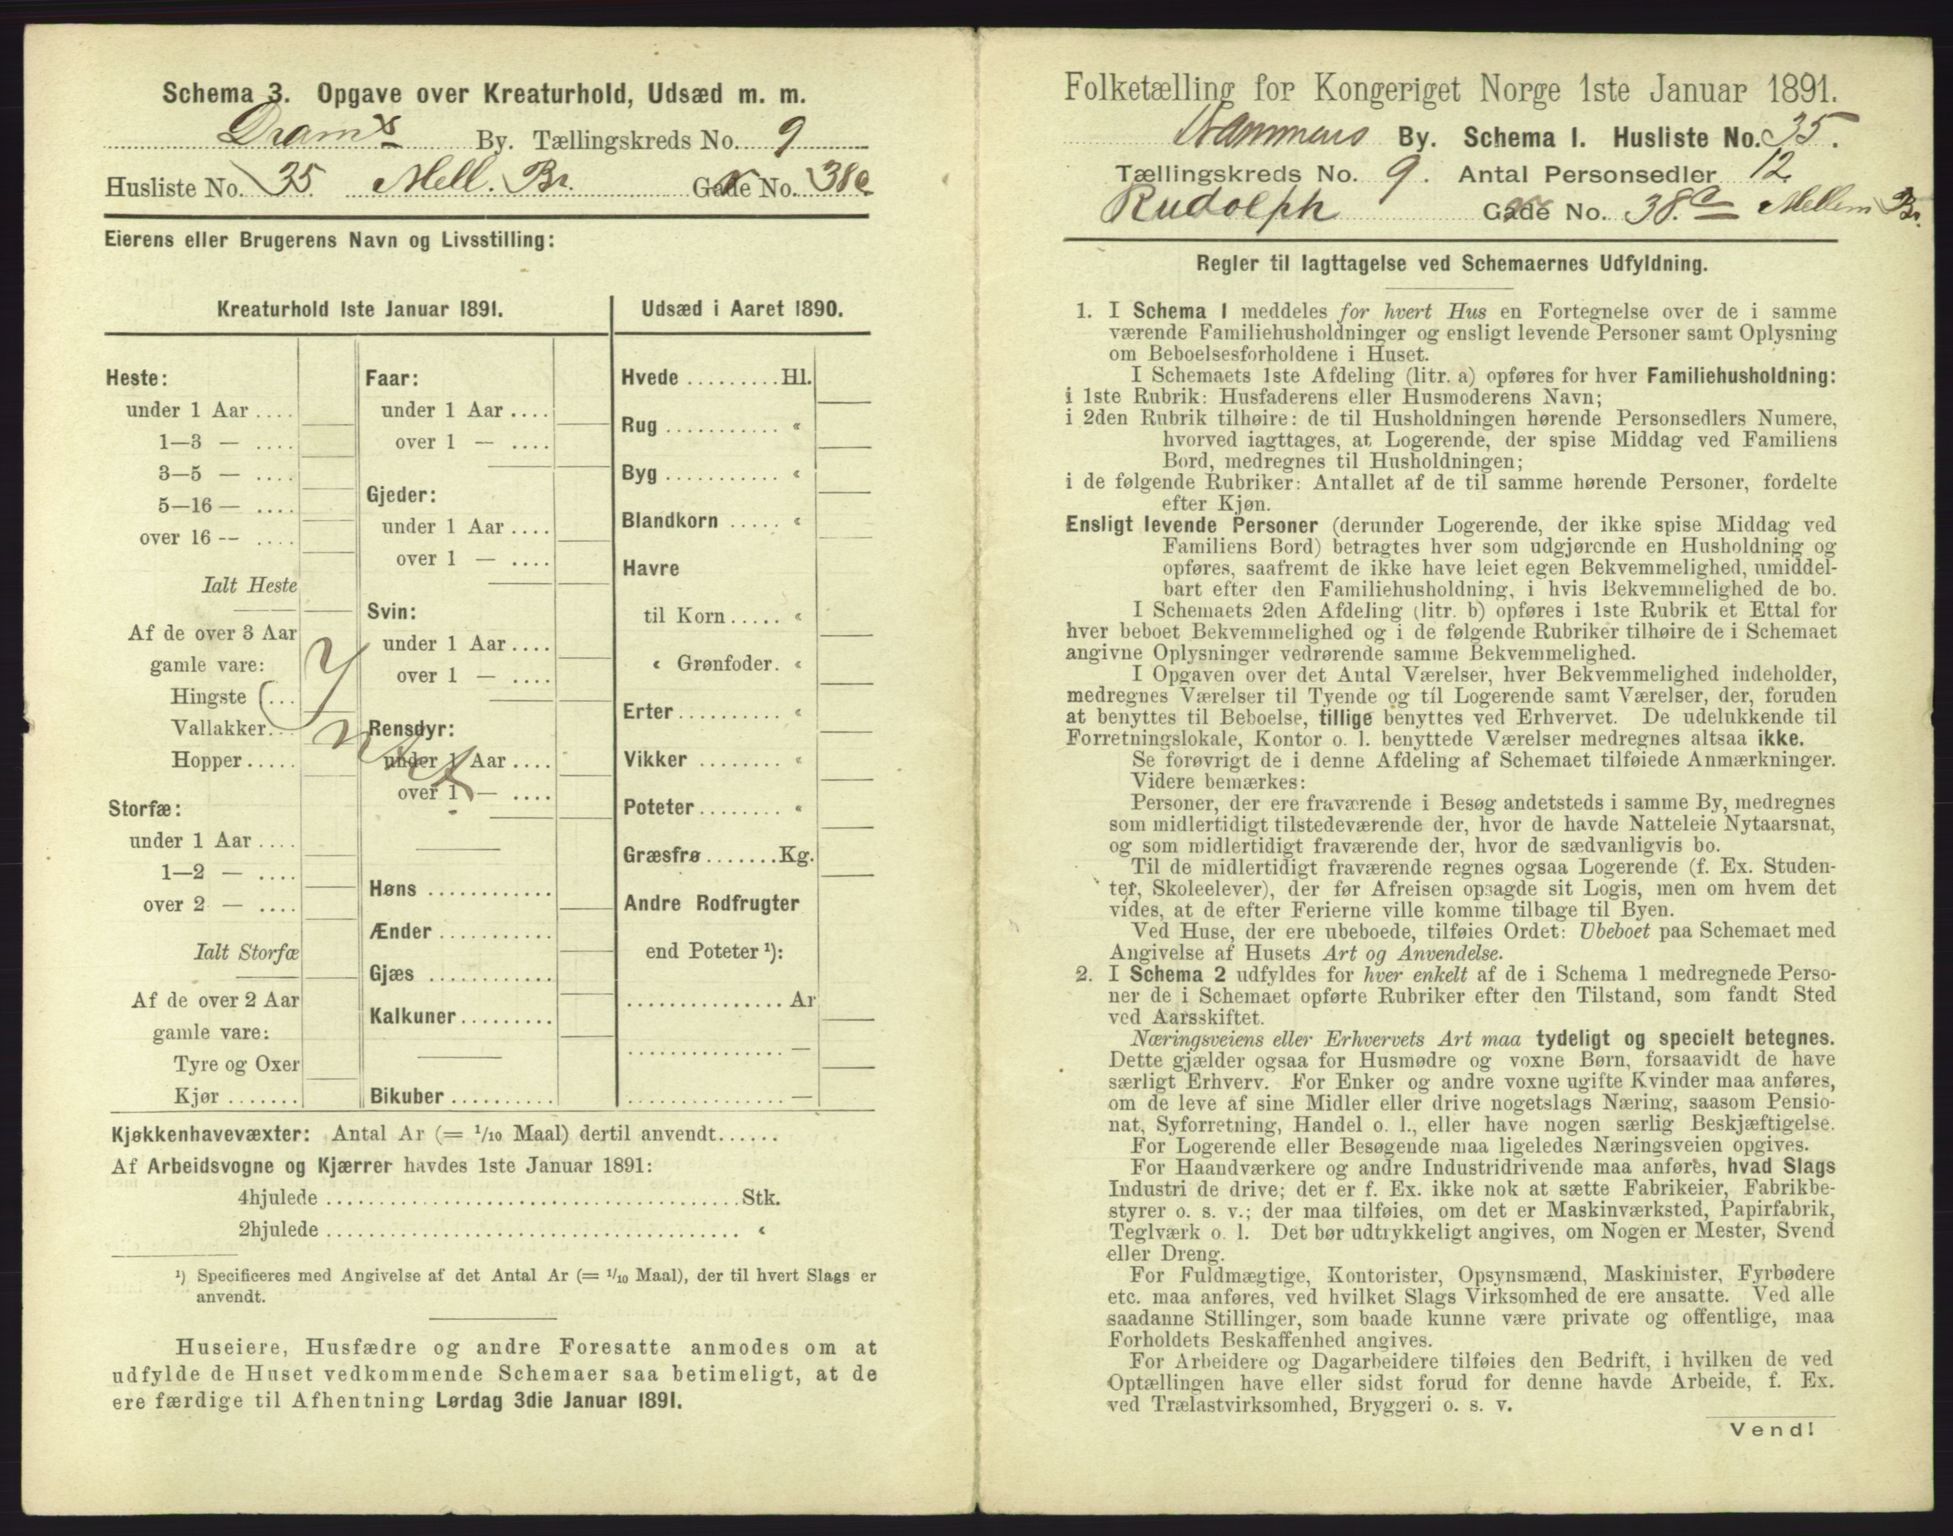 Schema 3. Opgave over Kreaturhold, Udsæd m. m.
Dramˢ By. Tællingskreds No. 9
Husliste No. 35 Mell. Br. Gade No. 38a
Eierens eller Brugerens Navn og Livsstilling:
Kreaturhold 1ste Januar 1891.
Heste:
under 1 Aar ....
1—3 — ....
3—5 — ....
5—16 — ....
over 16 -- ....
Ialt Heste
Af de over 3 Aar
gamle vare:
Hingste ....
Vallakker..
Hopper .....
Storfæ:
under 1 Aar ....
1—2 — ....
over 2 — ....
Ialt Storfæ
Af de over 2 Aar
gamle vare:
Tyre og Oxer
Kjør .......
Faar:
under 1 Aar ....
over 1 — ....
Gjeder:
under 1 Aar ....
over 1 — ....
Svin:
under 1 Aar ....
over 1 — ....
Rensdyr:
under 1 Aar ....
over 1 — ....
Høns ............
Ænder ...........
Gjæs ............
Kalkuner.........
Bikuber ..........
Udsæd i Aaret 1890.
Hvede .........Hl.
Rug ........... «
Byg ........... «
Blandkorn ..... «
Havre
til Korn ..... «
« Grønfoder. «
Erter .......... «
Vikker ........ «
Poteter ........ «
Græsfrø .......Kg.
Andre Rodfrugter
end Poteter ¹):
............... Ar
............... —
............... —
Kjøkkenhavevæxter: Antal Ar (= 1/10 Maal) dertil anvendt......
Af Arbeidsvogne og Kjærrer havdes 1ste Januar 1891:
4hjulede ........................................Stk.
2hjulede ........................................ «
¹) Specificeres med Angivelse af det Antal Ar (= 1/10 Maal), der til hvert Slags er
anvendt.
Huseiere, Husfædre og andre Foresatte anmodes om at
udfylde de Huset vedkommende Schemaer saa betimeligt, at de
ere færdige til Afhentning Lørdag 3die Januar 1891.
Folketælling for Kongeriget Norge 1ste Januar 1891.
Drammens By. Schema 1. Husliste No. 35.
Tællingskreds No. 9. Antal Personsedler 12
Rudolph Gade No. 38.a Mellem Br.
Regler til Iagttagelse ved Schemaernes Udfyldning.
1. I Schema 1 meddeles for hvert Hus en Fortegnelse over de i samme
værende Familiehusholdninger og ensligt levende Personer samt Oplysning
om Beboelsesforholdene i Huset.
I Schemaets 1ste Afdeling (litr. a) opføres for hver Familiehusholdning:
i 1ste Rubrik: Husfaderens eller Husmoderens Navn;
i 2den Rubrik tilhøire: de til Husholdningen hørende Personsedlers Numere,
hvorved iagttages, at Logerende, der spise Middag ved Familiens
Bord, medregnes til Husholdningen;
i de følgende Rubriker: Antallet af de til samme hørende Personer, fordelte
efter Kjøn.
Ensligt levende Personer (derunder Logerende, der ikke spise Middag ved
Familiens Bord) betragtes hver som udgjørende en Husholdning og
opføres, saafremt de ikke have leiet egen Bekvemmelighed, umiddel-
bart efter den Familiehusholdning, i hvis Bekvemmelighed de bo.
I Schemaets 2den Afdeling (litr. b) opføres i 1ste Rubrik et Ettal for
hver beboet Bekvemmelighed og i de følgende Rubriker tilhøire de i Schemaet
angivne Oplysninger vedrørende samme Bekvemmelighed.
I Opgaven over det Antal Værelser, hver Bekvemmelighed indeholder,
medregnes Værelser til Tyende og til Logerende samt Værelser, der, foruden
at benyttes til Beboelse, tillige benyttes ved Erhvervet. De udelukkende til
Forretningslokale, Kontor o. l. benyttede Værelser medregnes altsaa ikke.
Se forøvrigt de i denne Afdeling af Schemaet tilføiede Anmærkninger.
Videre bemærkes:
Personer, der ere fraværende i Besøg andetsteds i samme By, medregnes
som midlertidigt tilstedeværende der, hvor de havde Natteleie Nytaarsnat,
og som midlertidigt fraværende der, hvor de sædvanligvis bo.
Til de midlertidigt fraværende regnes ogsaa Logerende (f. Ex. Studen-
ter, Skoleelever), der før Afreisen opsagde sit Logis, men om hvem det
vides, at de efter Ferierne ville komme tilbage til Byen.
Ved Huse, der ere ubeboede, tilføies Ordet: Ubeboet paa Schemaet med
Angivelse af Husets Art og Anvendelse.
2. I Schema 2 udfyldes for hver enkelt af de i Schema 1 medregnede Perso-
ner de i Schemaet opførte Rubriker efter den Tilstand, som fandt Sted
ved Aarsskiftet.
Næringsveiens eller Erhvervets Art maa tydeligt og specielt betegnes.
Dette gjælder ogsaa for Husmødre og voxne Børn, forsaavidt de have
særligt Erhverv. For Enker og andre voxne ugifte Kvinder maa anføres,
om de leve af sine Midler eller drive nogetslags Næring, saasom Pensio-
nat, Syforretning, Handel o. l., eller have nogen særlig Beskjæftigelse.
For Logerende eller Besøgende maa ligeledes Næringsveien opgives.
For Haandværkere og andre Industridrivende maa anføres, hvad Slags
Industri de drive; det er f. Ex. ikke nok at sætte Fabrikeier, Fabrikbe-
styrer o. s. v.; der maa tilføies, om det er Maskinværksted, Papirfabrik,
Teglværk o. l. Det bør udtrykkeligt angives, om Nogen er Mester, Svend
eller Dreng.
For Fuldmægtige, Kontorister, Opsynsmænd, Maskinister, Fyrbødere
etc. maa anføres, ved hvilket Slags Virksomhed de ere ansatte. Ved alle
saadanne Stillinger, som baade kunne være private og offentlige, maa
Forholdets Beskaffenhed angives.
For Arbeidere og Dagarbeidere tilføies den Bedrift, i hvilken de ved
Optællingen have eller sidst forud for denne havde Arbeide, f. Ex.
ved Trælastvirksomhed, Bryggeri o. s. v.
Vend!